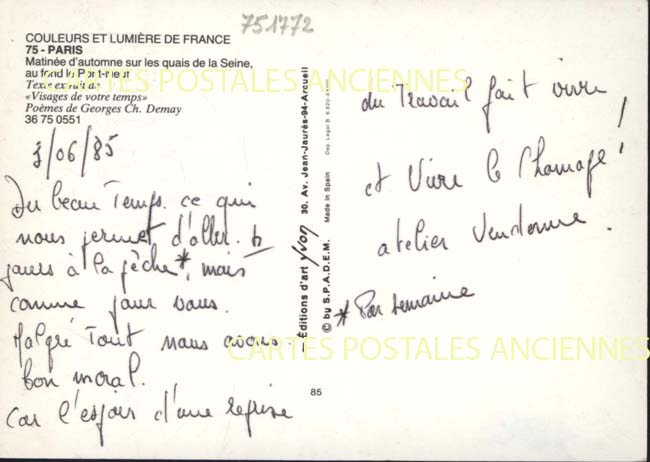 751772
COULEURS ET LUMIÈRE DE FRANCE
75 - PARIS
Matinée d'automne sur les quais de la Seine,
au fond le Pont-neuf
Texte extrait de
«Visages de votre temps»
Poèmes de Georges Ch. Demay
36 75 0551
CARTES POSTALES ANCIENNES
/06/85
Du beau Temps. ce qui
nous permet d'aller. 
jours à la pêche*, mais
comme pour vous.
Malgré Tout nous avons.
bon moral.
Car l'espoir d'une reprise
Editions d'art yvon 30. Av. Jean-Jaurès-94-Arcueil
© by S.P.A.D.E.M. Made in Spain Dep. Legal B.
85
du Travail fait vivre
et Vive le Chomage!
atelier Vendome.
* Par semaine
CARTES POSTALES ANCIENNES